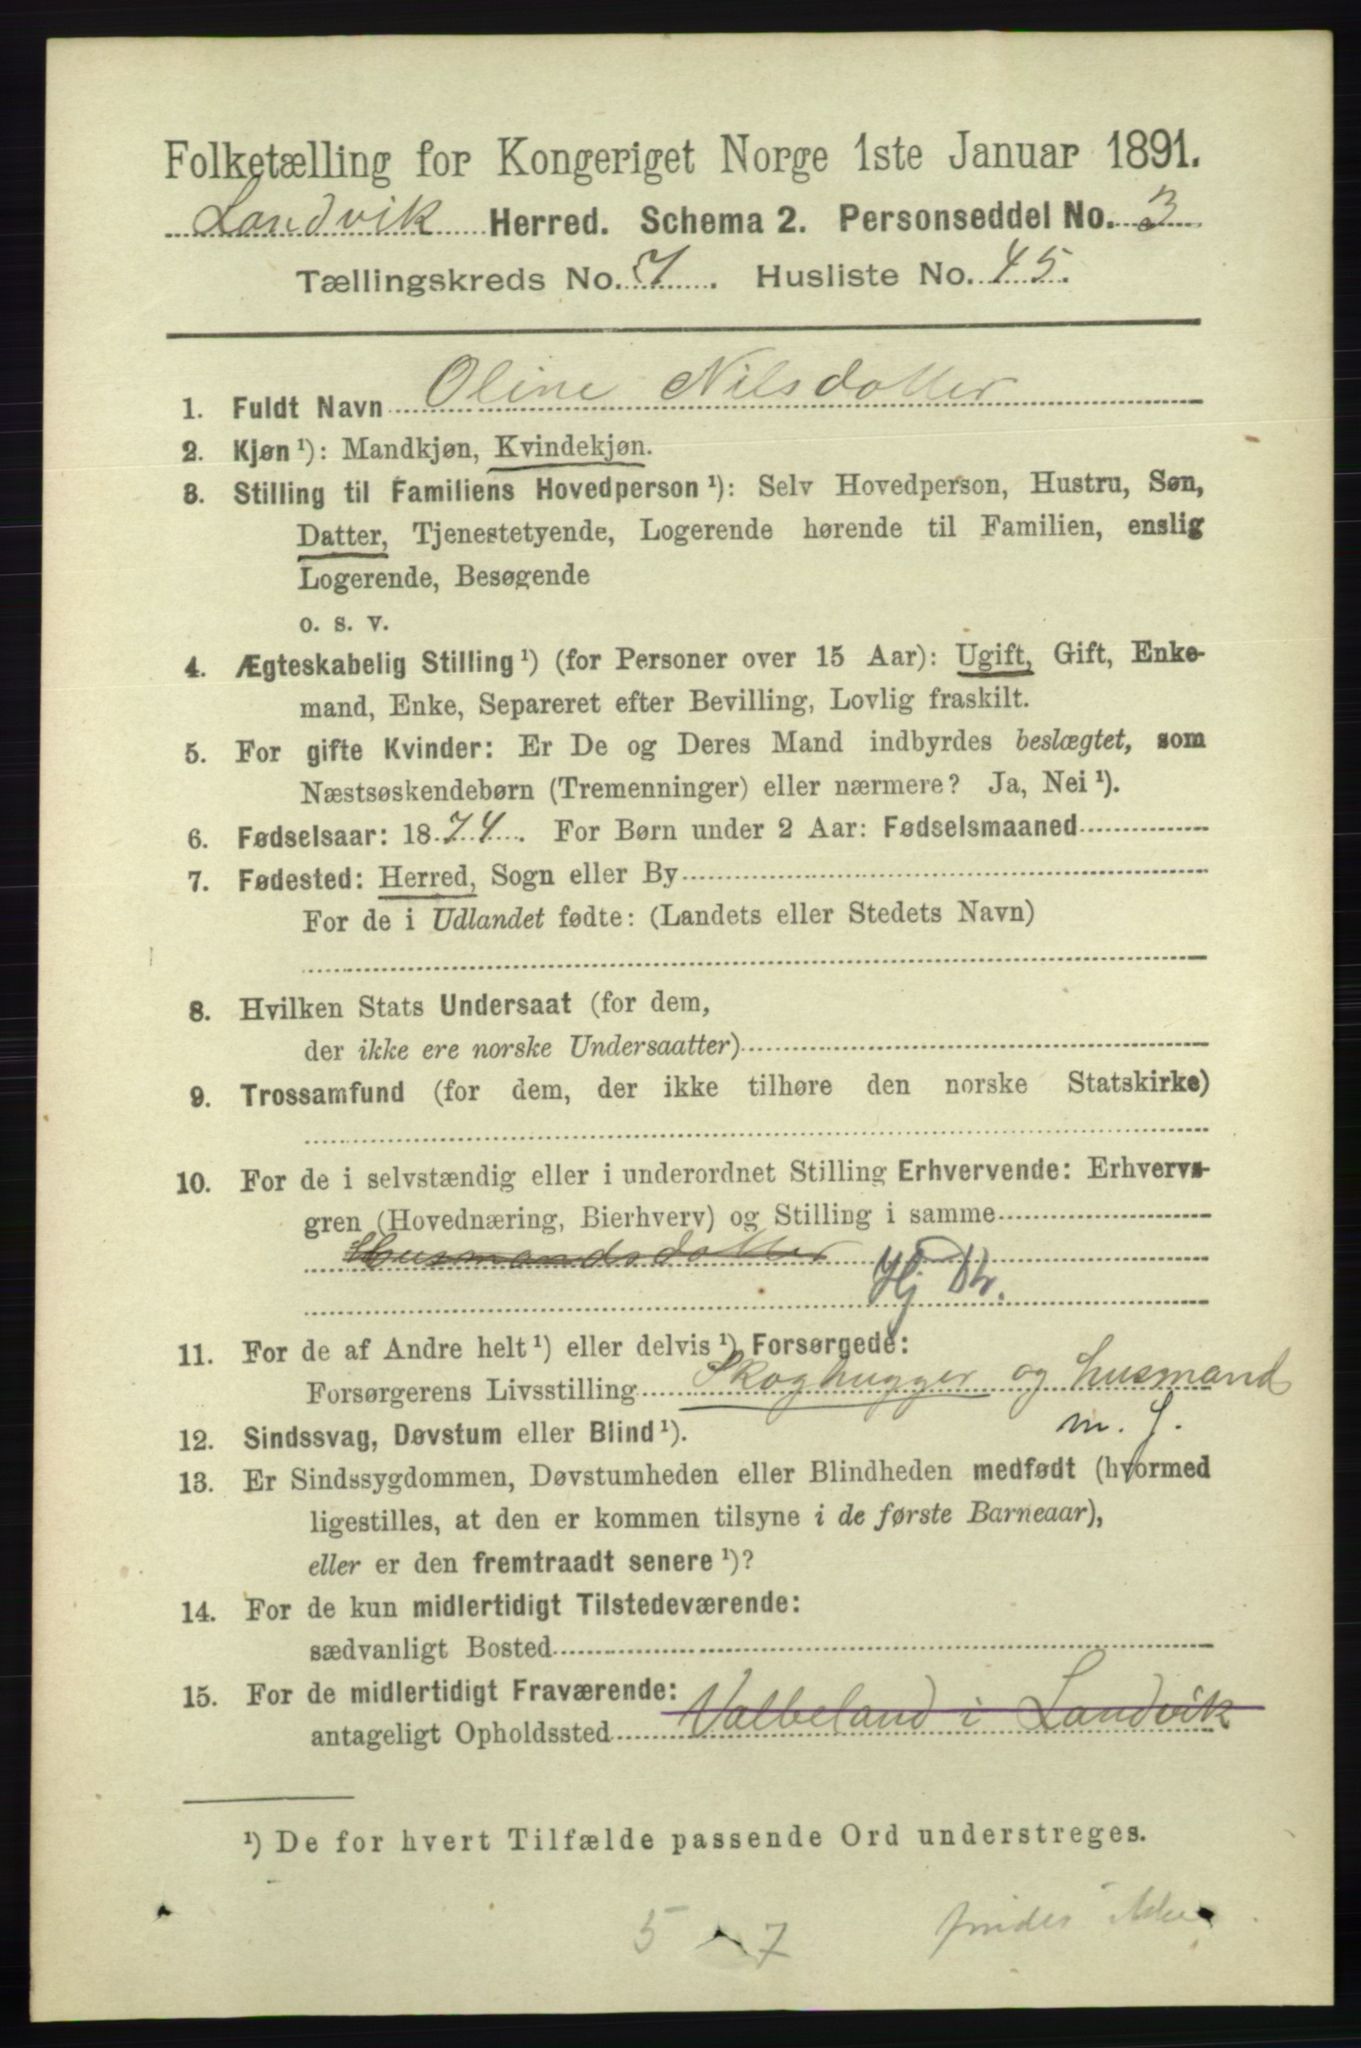 Folketælling for Kongeriget Norge 1ste Januar 1891.
Landvik Herred. Schema 2. Personseddel No. 3
Tællingskreds No. 7. Husliste No. 45.
1. Fuldt Navn Oline Nilsdotter
2. Kjøn ¹): Mandkjøn, Kvindekjøn.
3. Stilling til Familiens Hovedperson ¹): Selv Hovedperson, Hustru, Søn,
Datter, Tjenestetyende, Logerende hørende til Familien, enslig
Logerende, Besøgende
o. s. v.
4. Ægteskabelig Stilling ¹) (for Personer over 15 Aar): Ugift, Gift, Enke-
mand, Enke, Separeret efter Bevilling, Lovlig fraskilt.
5. For gifte Kvinder: Er De og Deres Mand indbyrdes beslægtet, som
Næstsøskendebørn (Tremenninger) eller nærmere? Ja, Nei ¹).
6. Fødselsaar: 1874. For Børn under 2 Aar: Fødselsmaaned
7. Fødested: Herred, Sogn eller By
For de i Udlandet fødte: (Landets eller Stedets Navn)
8. Hvilken Stats Undersaat (for dem,
der ikke ere norske Undersaatter)
9. Trossamfund (for dem, der ikke tilhøre den norske Statskirke)
10. For de i selvstændig eller i underordnet Stilling Erhvervende: Erhvervs-
gren (Hovednæring, Bierhverv) og Stilling i samme
Husmandsdotter
Hj
11. For de af Andre helt ¹) eller delvis ¹) Forsørgede:
Forsørgerens Livsstilling Skoghugger og husmand
m. J.
12. Sindssvag, Døvstum eller Blind ¹).
13. Er Sindssygdommen, Døvstumheden eller Blindheden medfødt (hvormed
ligestilles, at den er kommen tilsyne i de første Barneaar),
eller er den fremtraadt senere ¹)?
14. For de kun midlertidigt Tilstedeværende:
sædvanligt Bosted
15. For de midlertidigt Fraværende:
antageligt Opholdssted Valbeland i Landvik
¹) De for hvert Tilfælde passende Ord understreges.
5 7 findes